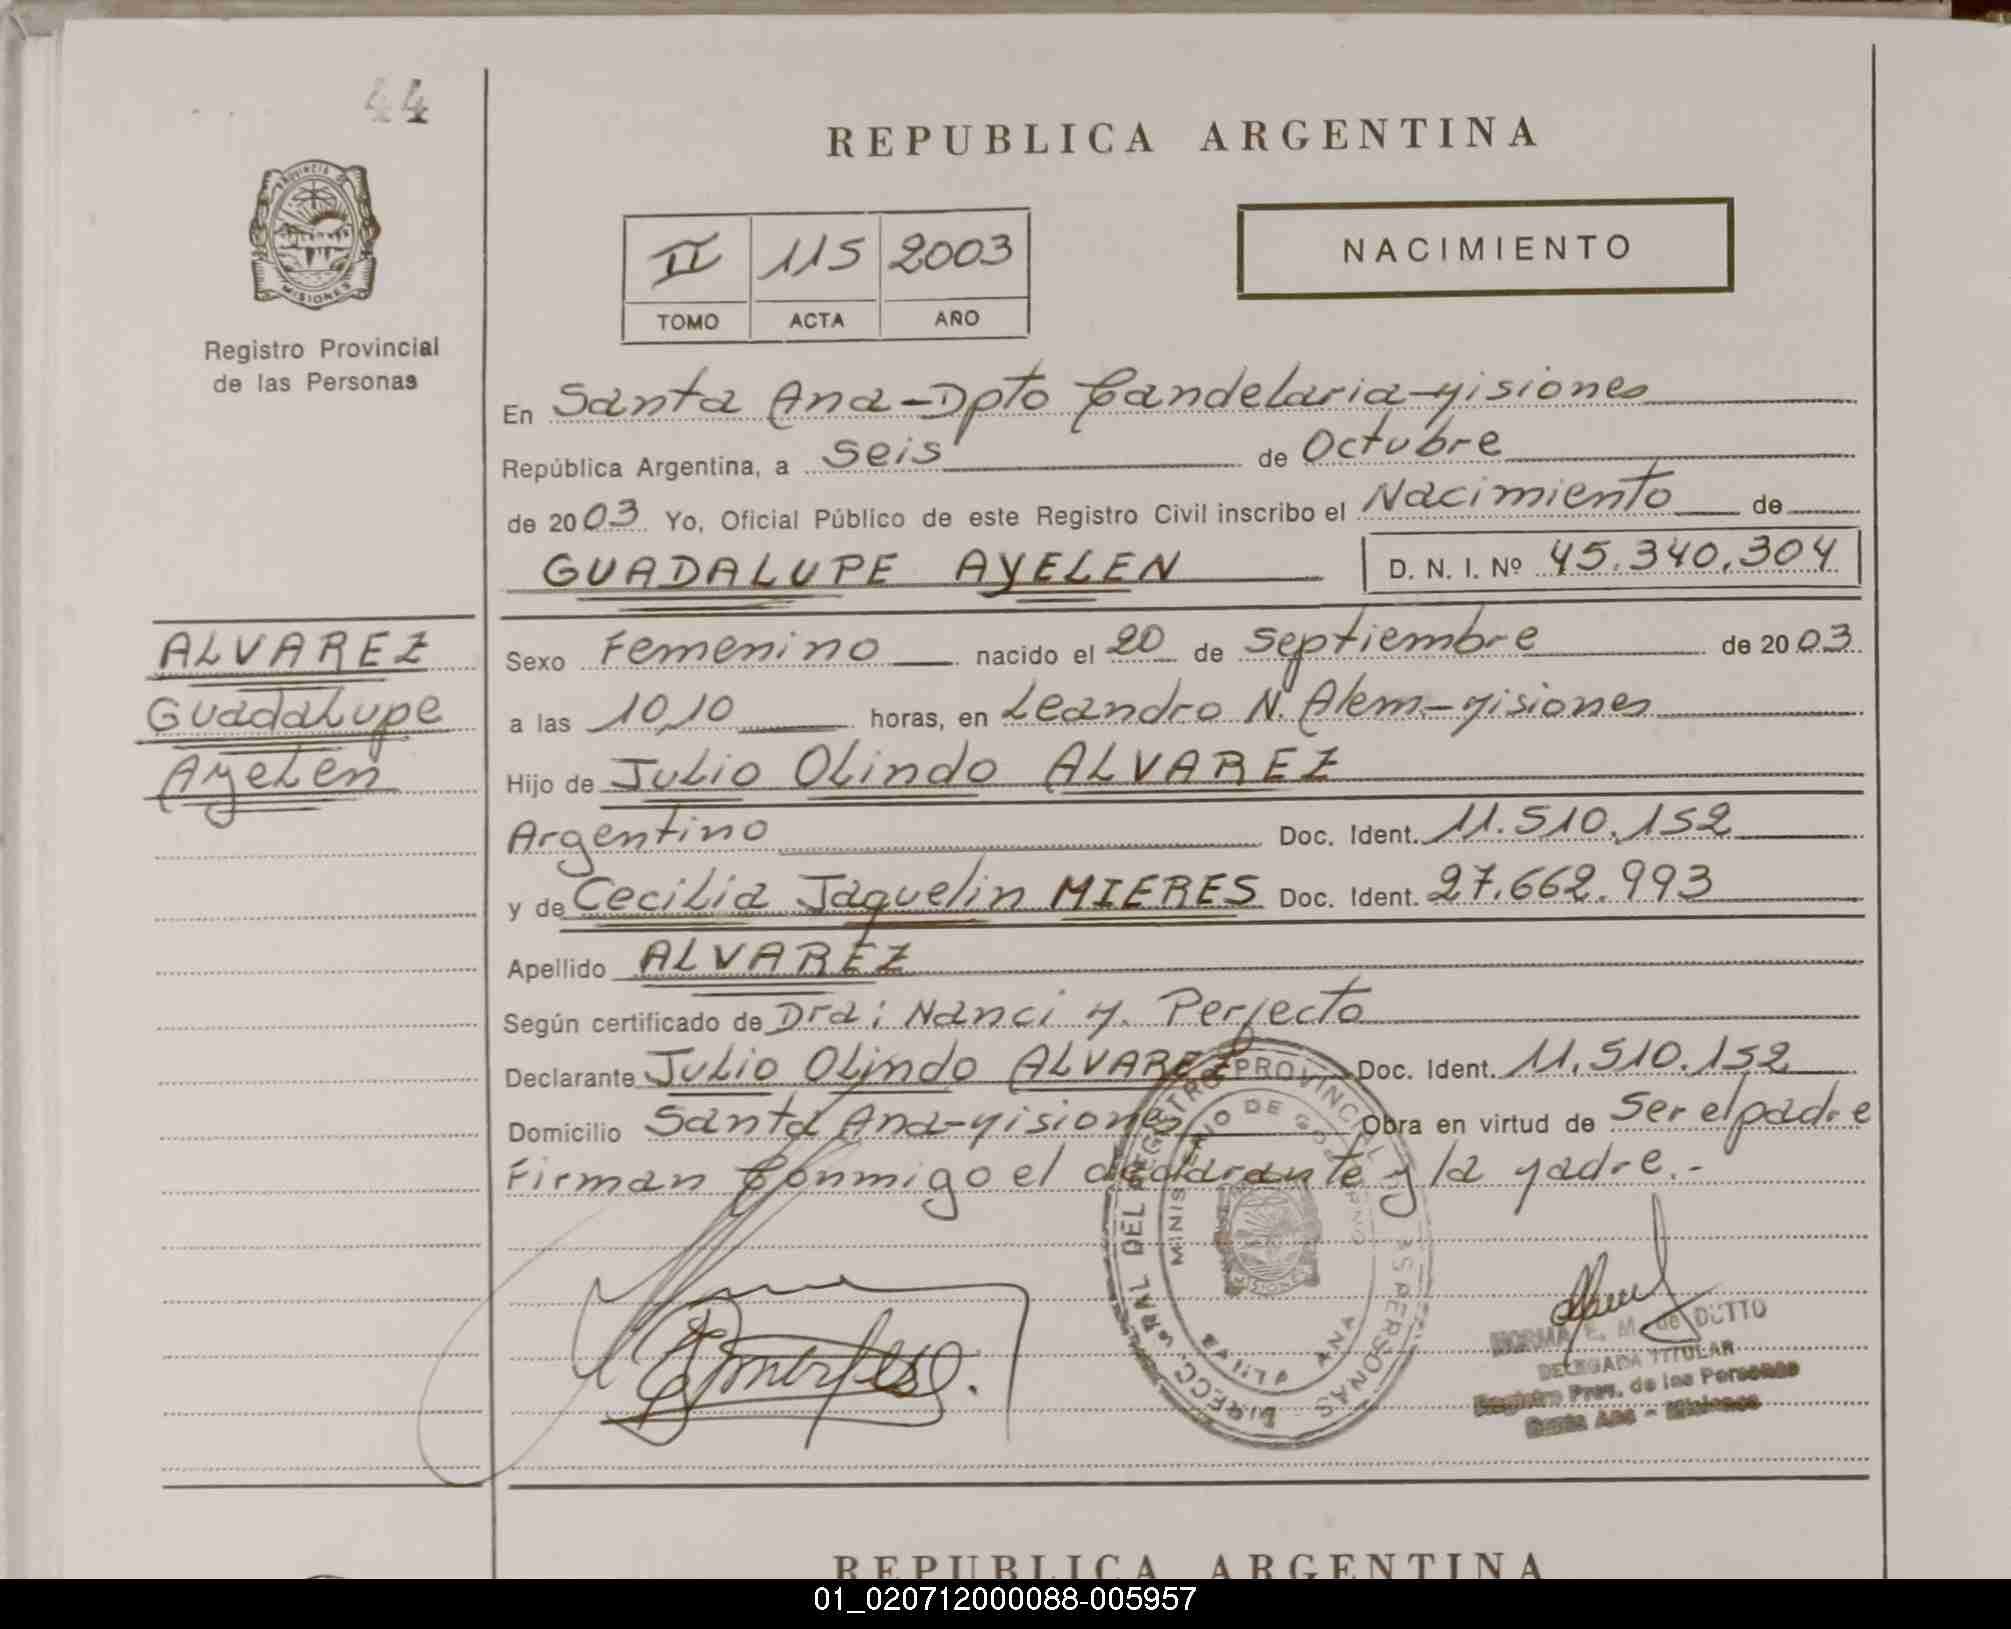 44
REPUBLICA ARGENTINA
PROVINCIA DE
MISIONES
Registro Provincial
de las Personas
II 115 2003
TOMO ACTA AÑO
NACIMIENTO
En Santa Ana-Dpto Candelaria-Misiones
República Argentina, a Seis de Octubre
de 2003 Yo, Oficial Público de este Registro Civil inscribo el Nacimiento de
GUADALUPE AYELEN D. N. I. Nº 45.340.304
ALVAREZ
Guadalupe
Ayelen
Sexo Femenino nacido el 20 de Septiembre de 2003
a las 10,10 horas, en Leandro N. Alem-Misiones
Hijo de Julio Olindo ALVAREZ
Argentino Doc. Ident. 11.510.152
y de Cecilia Jaquelin MIERES Doc. Ident. 27.662.993
Apellido ALVAREZ
Según certificado de Dra: Nanci M. Perfecto
Declarante Julio Olindo ALVAREZ Doc. Ident. 11.510.152
Domicilio Santa Ana-Misiones Obra en virtud de Ser el padre
Firman Conmigo el declarante y la Madre.-
DIRECC. GRAL. DEL REGISTRO PROVINCIAL DE LAS PERSONAS
MINISTERIO DE GOBIERNO
MISIONES
SANTA ANA
NORMA E. M. de DUTTO
DELEGADA TITULAR
Registro Prov. de las Personas
Santa Ana - Misiones
REPUBLICA ARGENTINA
01_020712000088-005957